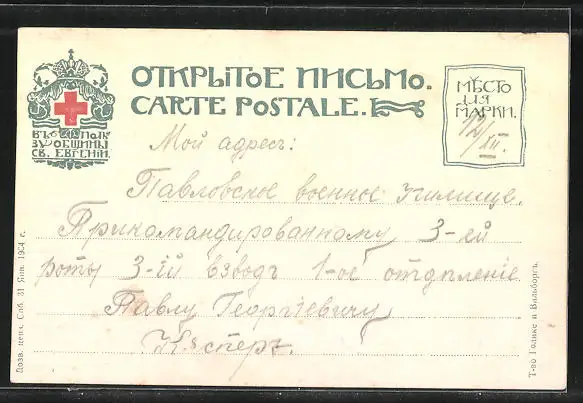 ОТКРЫТОЕ ПИСЬМО.
CARTE POSTALE.
ВЪ ПОЛЬ
ЗУ ОБЩИНЫ
СВ. ЕВГЕНІИ.
МѢСТО
ДЛЯ
МАРКИ.
12/XII.
Мой адресъ:
Павловское военное училище.
Прикомандированному 3-ей
роты 3-ій взводъ 1-ое отдѣленіе
Павлу Георгіевичу
Дозв. ценз. Спб. 31 Янв. 1904 г.
Т-во Голике и Вильборгъ.